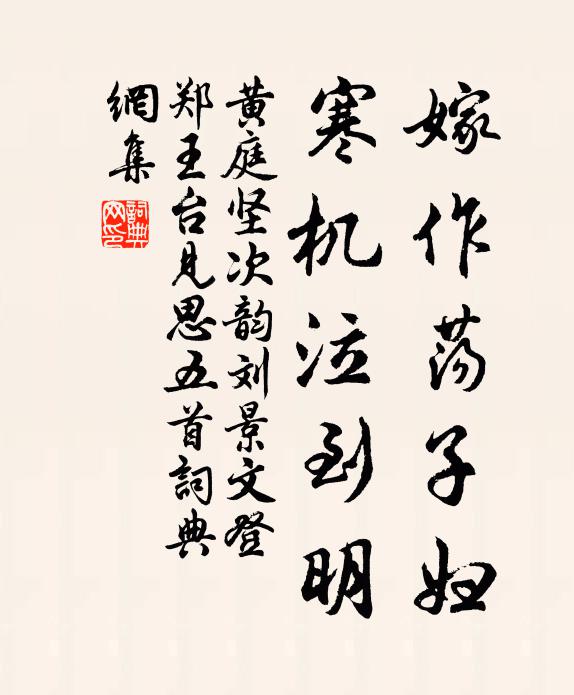 嫁作荡子妇
寒机泣到明
黄庭坚次韵刘景文登
郑王台见思五首詞典
網集
詞典
网印